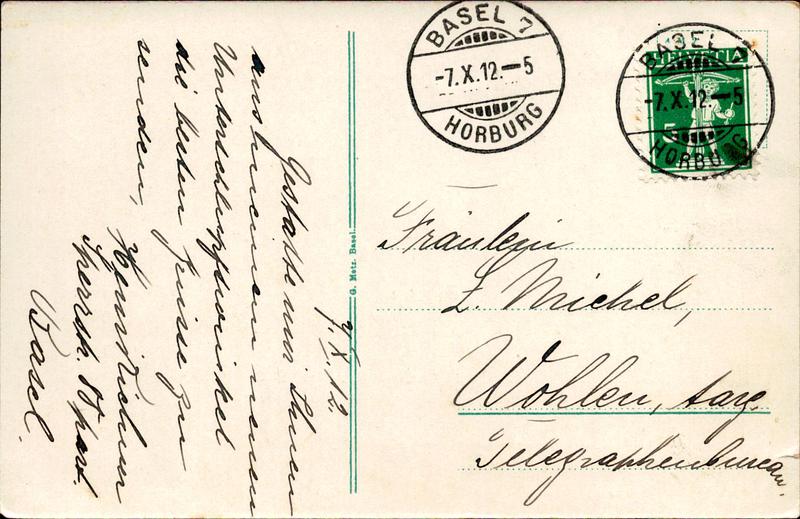 7.X.12.
Gestatte mir Ihnen
aus meinem neuen
Unterschlupfwinkel
die besten Grüsse zu
senden,
Basel.
G. Metz. Basel.
BASEL 7
-7.X.12.-5
HORBURG
BASEL 7
HELVETIA
-7.X.12.-5
5
HORBURG
Fräulein
L. Michel,
Wohlen, Aarg.
Telegraphenbureau.